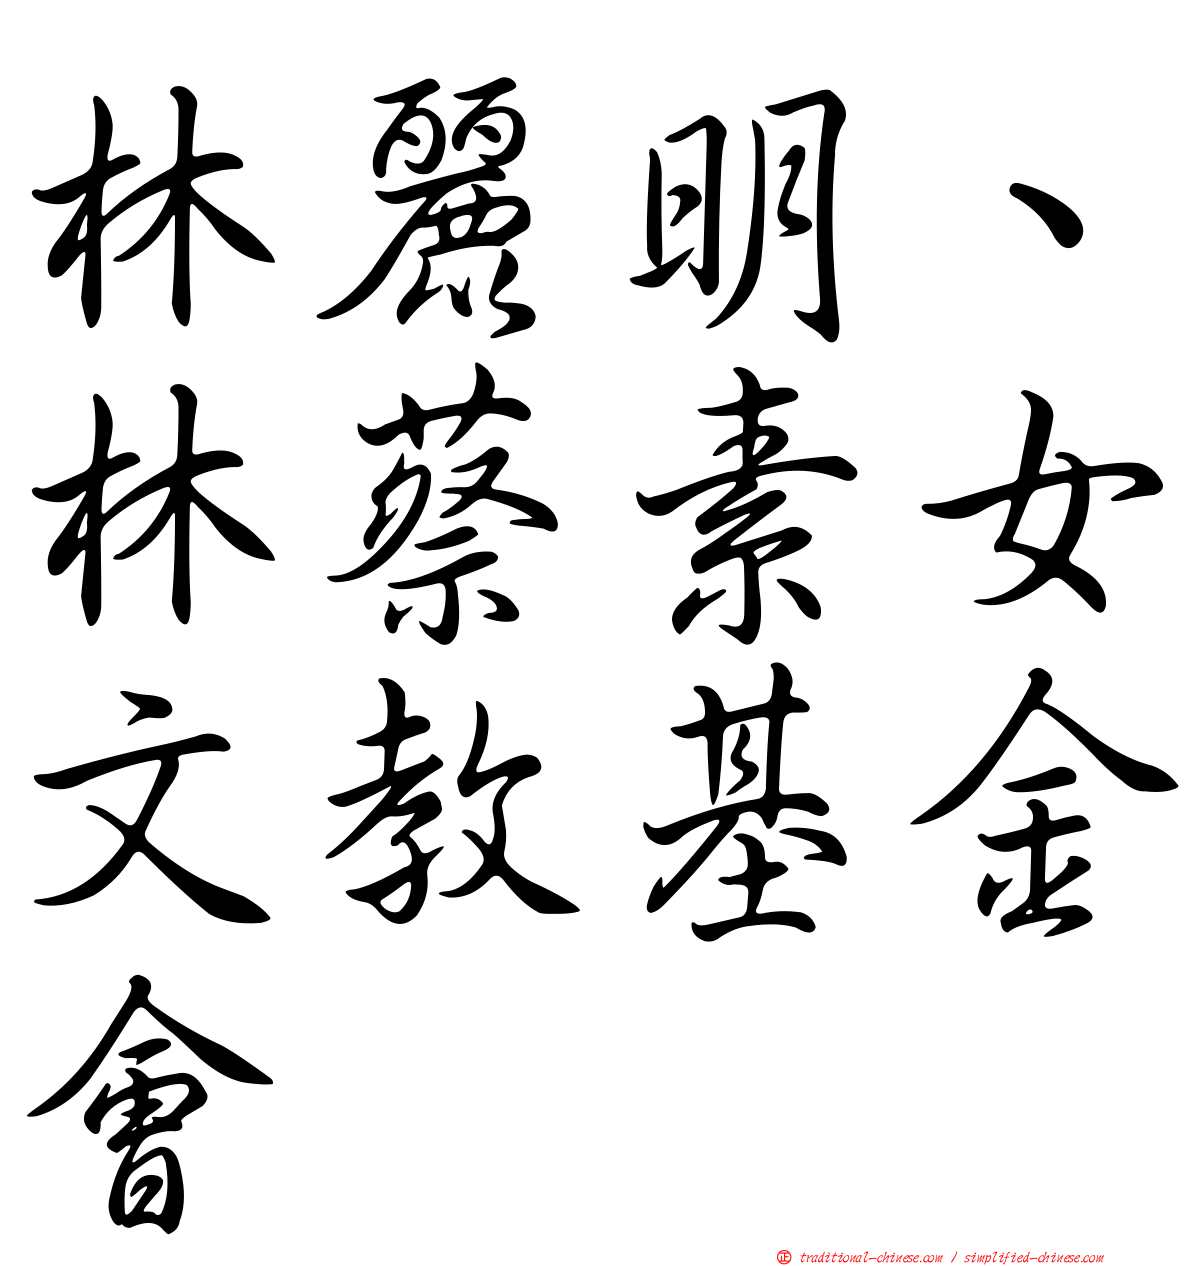 林麗明、
林蔡素女
文教基金
會
正 traditional-chinese.com / simplified-chinese.com